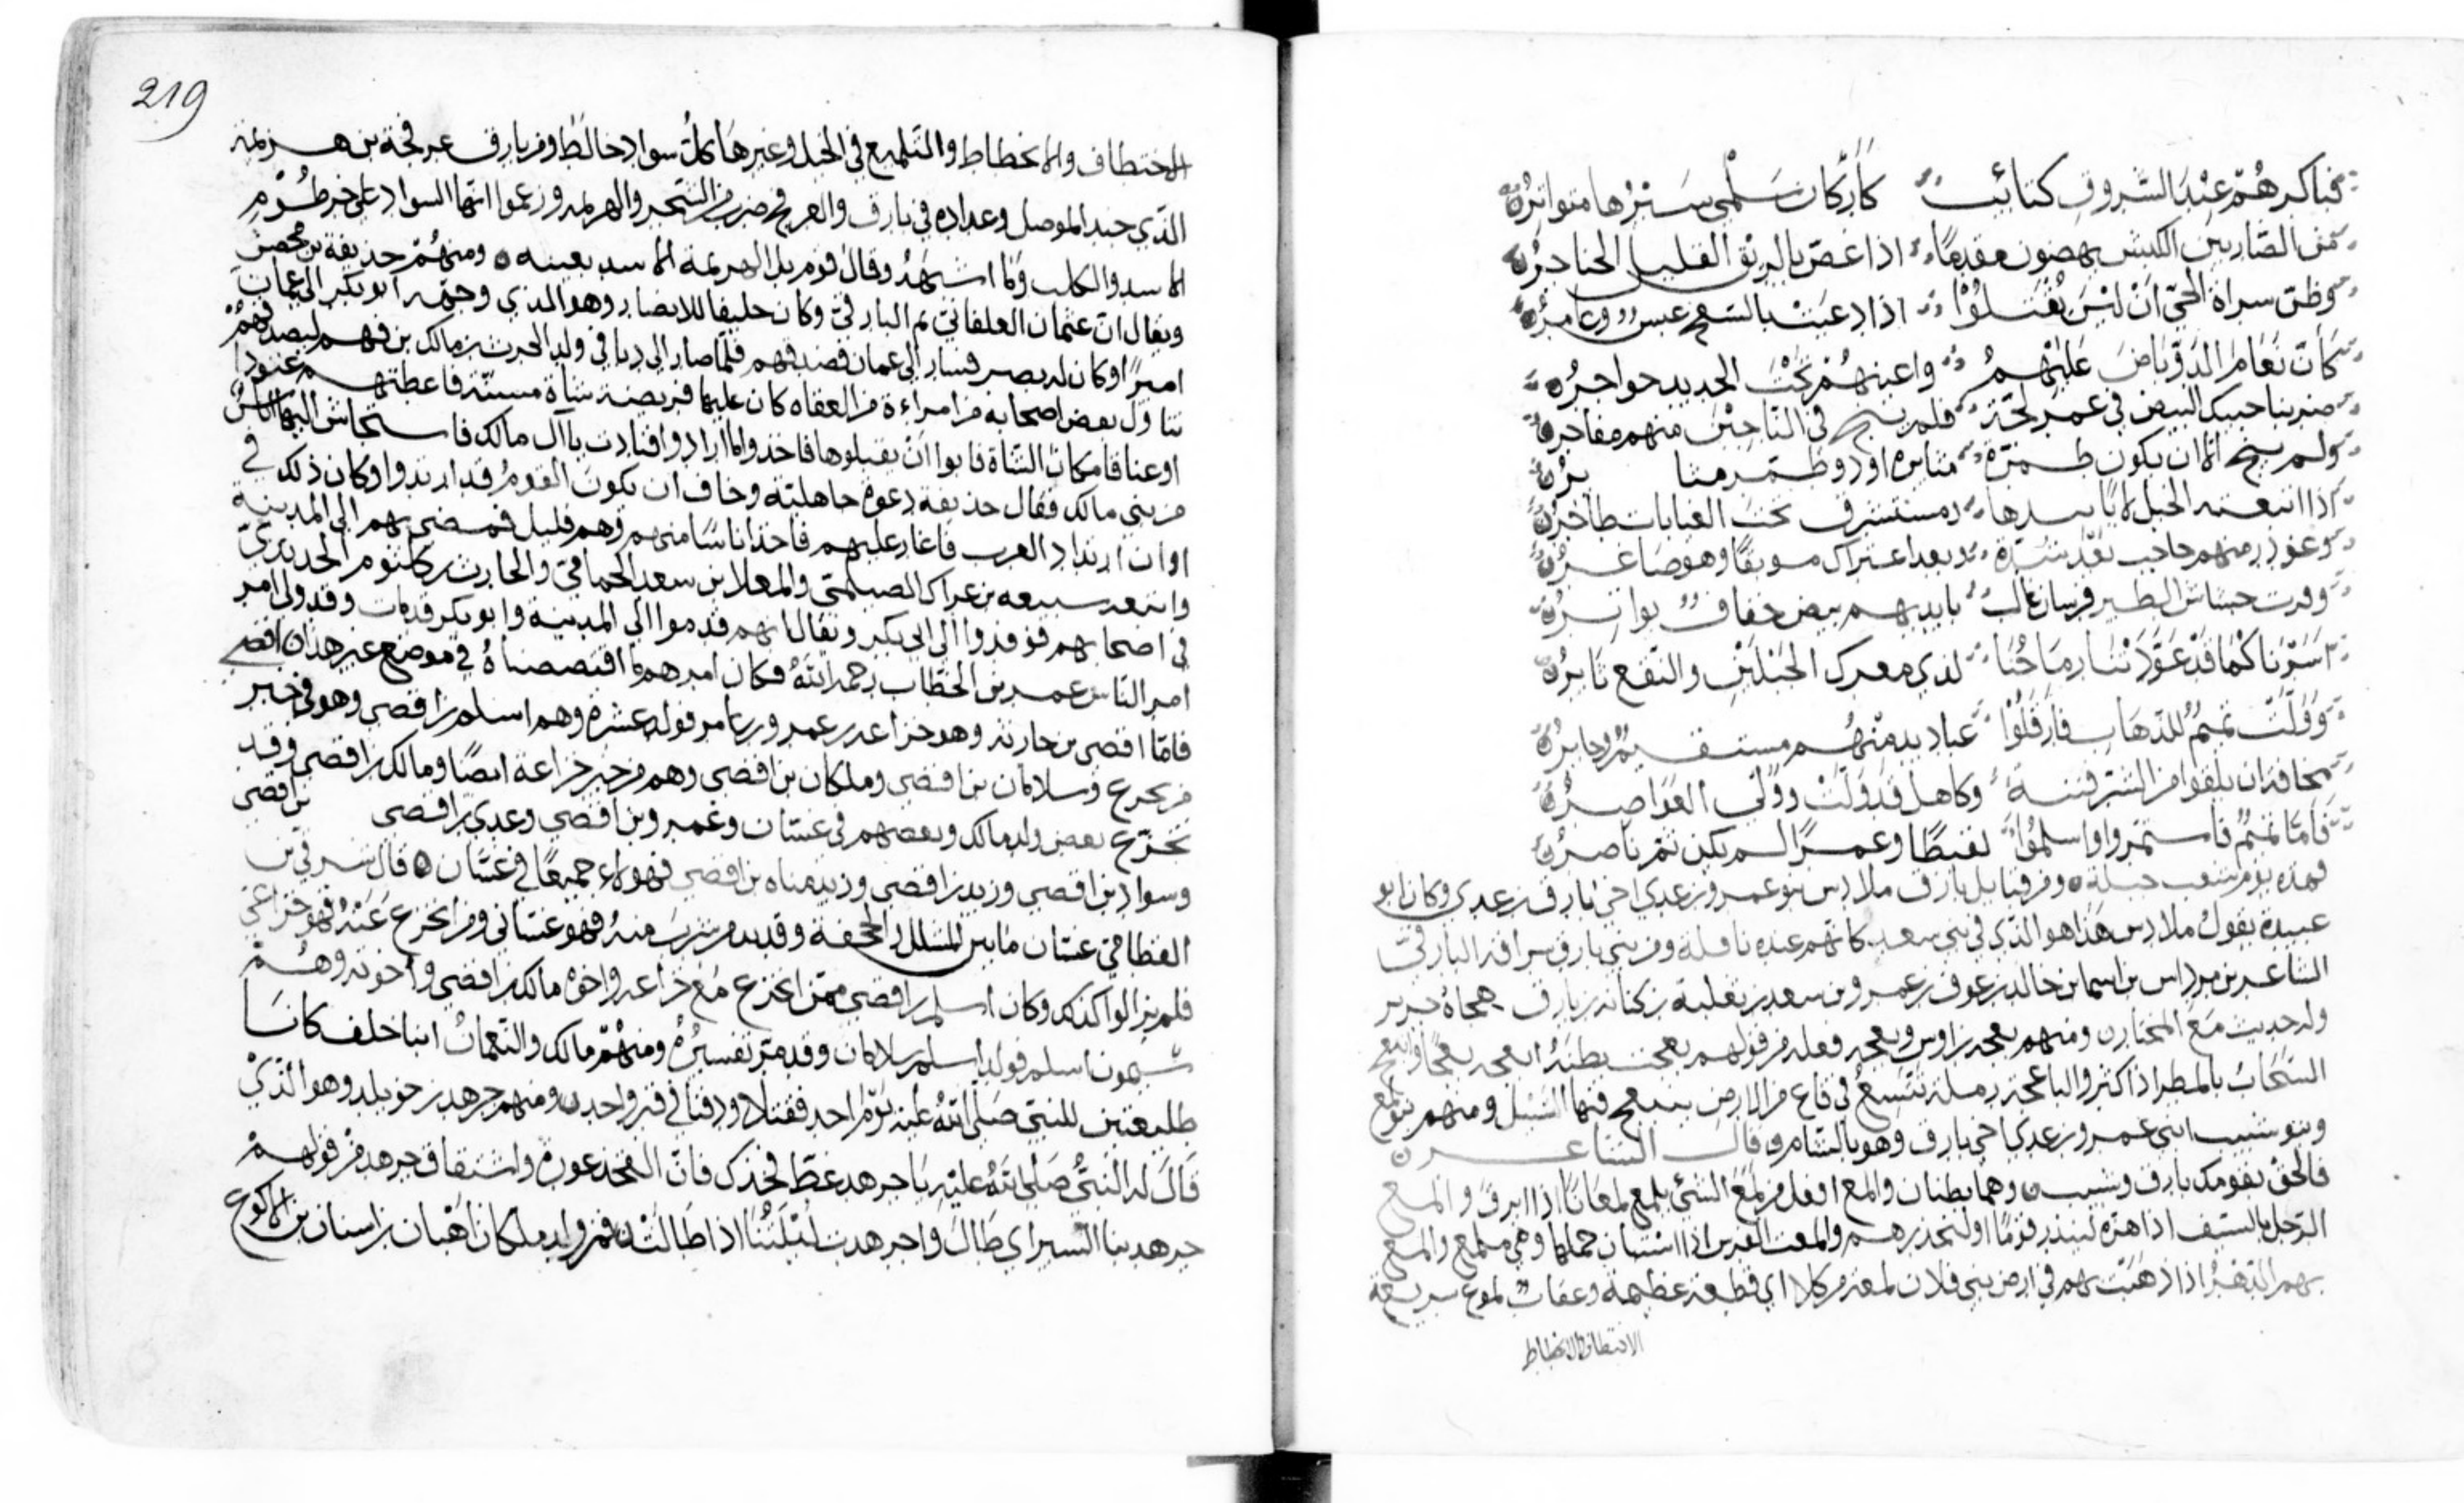 فباكرهم عند الشروق كتائب كاركان سلمى سيرها متواتر
من الضاربين الكبش يمضون مقدما اذا غص بالريق القليل الحناجر
وظن سراة الحي ان ليس يقتلوا اذا دعيت بالسفح عبس وعامر
كان نعام الدو باض عليهم واعينهم تحت الحديد حواجر
ضربنا حبيك البيض في غمر لجة فلم ينج في الناجين منهم مفاخر
ولم ينج الا ان يكون طمرة او ذو طمر
اذا اتبعته الخيل لا
وغودر منهم حاجب بعد اعتراك وهو صاغر
وفرت الطير فرسان غالب بايديهم بيض خفاف بواتر
كما قد عودتنا رماحنا لدى معرك الخيلين والنقع ثاير
وولت تميم للذهاب فارقلوا عباديد منهم مستقيم وجاير
مخافة ان يلقوا من الشر فتنة وكاهل قد ولت وولى العواصر
فاما تميم فاستمروا واسلموا لقيطا وعمرا لم يكن ثم ناصر
فهذه يوم شعب جبلة ومن قبايل بارق ملادس بنو عمرو بن عدي اخي بارق بن عدي وكان ابو
عبيدة يقول ملادس هذا هو الذي في بني سعد كانهم عنده ناقلة ومن بني بارق سراقه البارقي
الشاعر بن مرداس بن اسما بن خالد بن عوف بن عمرو بن سعد بن ثعلبة بن كنانه بن بارق هجاه جرير
وله حديث مع المختار ومنهم بعجه بن اوس وبعجه فعله من قولهم بعجت بطنه ابعجه بعجا وانبعج
السحاب بالمطر اذا كثر والباعجه رملة تتسع في قاع من الارض ينبعج فيها السيل ومنهم بنو المع
وبنو شبيب ابني عمرو بن عدي اخي بارق وهو بالشام قال الشاعر
فالحق بقومك بارق وشبيب وهما بطنان والمع افعل من لمع الشيء يلمع لمعانا اذا ابرق والمع
الرجل بالسيف اذا هزه لينذر قوما او ليحذرهم والمعت الفرس اذا استبان حملها وهي ملمع والمع
بهم الدهر اذا ذهبت بهم في ارض بني فلان لمعه من كلا اي قطعة عظيمة وعقاب لموع سريعة
الاختطاف والانحطاط
219
الاختطاف والانحطاط والتلميع في الخيل وغيرها كل سواد خالط ومن بارق عرفجة بن هرثمة
الذي جند الموصل وعداده في بارق والعرفج ضرب من الشجر والهرثمه وزعموا انها السواد على خرطوم
الاسد والكلب ولما اشهد وقال قوم بل الهرثمة الاسد بعينه ومنهم حذيفة بن محصن
ويقال ان عثمان العلفاني ثم البارقي وكان حليفا للانصار وهو الذي وجهه ابو بكر الى عمان
اميرا وكان له بصر فسار الى عمان فصدقهم فلما صار الى دبا في ولد الحرث بن مالك بن فهم ليصدقهم
تناول بعض اصحابه من امراءة من العفاه كان عليها فريضة شاة مسنة فاعطتهم عنودا
او عناقا مكان الشاة فابوا ان يقبلوها فاخذوا ما ارادوا فنادت يا آل مالك فاستجاش اليها الناس
من بني مالك فقال حذيفة دعوة جاهلية وخاف ان يكون القوم قد ارتدوا وكان ذلك في
اوان ارتداد العرب فاغار عليهم فاخذ اناسا منهم وهم قليل فمضى بهم الى المدينة
واتبعه سبيعه بن عراك الصيلمي والمعلا بن سعد الحمامي والحارث بن كلثوم الحديدي
في اصحابهم فوفدوا الى ابي بكر ويقال انهم قدموا الى المدينة وابو بكر قد مات وقد ولى امر
امر الناس عمر بن الخطاب رحمه الله فكان امرهم ما اقتصصناه في موضع غير هذا اقصي
فاما افصى بن حارثه وهو خزاعه بن عمرو بن عامر فولد عشرة وهم اسلم بن افصى وهو في خبر
من يخزع وسلامان بن افصى وملكان بن افصى وهم من خبر خزاعة ايضا ومالك بن افصى وقد
تخزع بعض ولد مالك وبعضهم في غسان وعمرو بن افصى وعدي بن افصى بن افصى
وسواد بن افصى وزيد بن افصى وزيد مناه بن افصى فهولاء جميعا في غسان قال شرقي بن
القطامي غسان ما بين المشلل والجحفة وقديد من شرب منه فهو غساني ومن انخزع عنه فهو خزاعي
فلم يزالوا كذلك وكان اسلم بن افصى ممن انخزع مع خزاعه واخوه مالك بن افصى واخوته وهم
اسلم فولد اسلم سلامان وقد مر تفسيره ومنهم مالك والنعمان ابنا خلف كانا
طليعتين للنبي صلى الله عليه يوم احد فقتلا ودفنا في قبر واحد ومنهم جرهد بن خويلد وهو الذي
قال له النبي صلى الله عليه يا جرهد غط فخذك فان الفخذ عورة واشتقاق جرهد من قولهم
جرهد بنا السير اي طال واجرهدت ليلتنا اذا طالت فمن ولد ملكان اهبان بن اسنان بن الاكوع